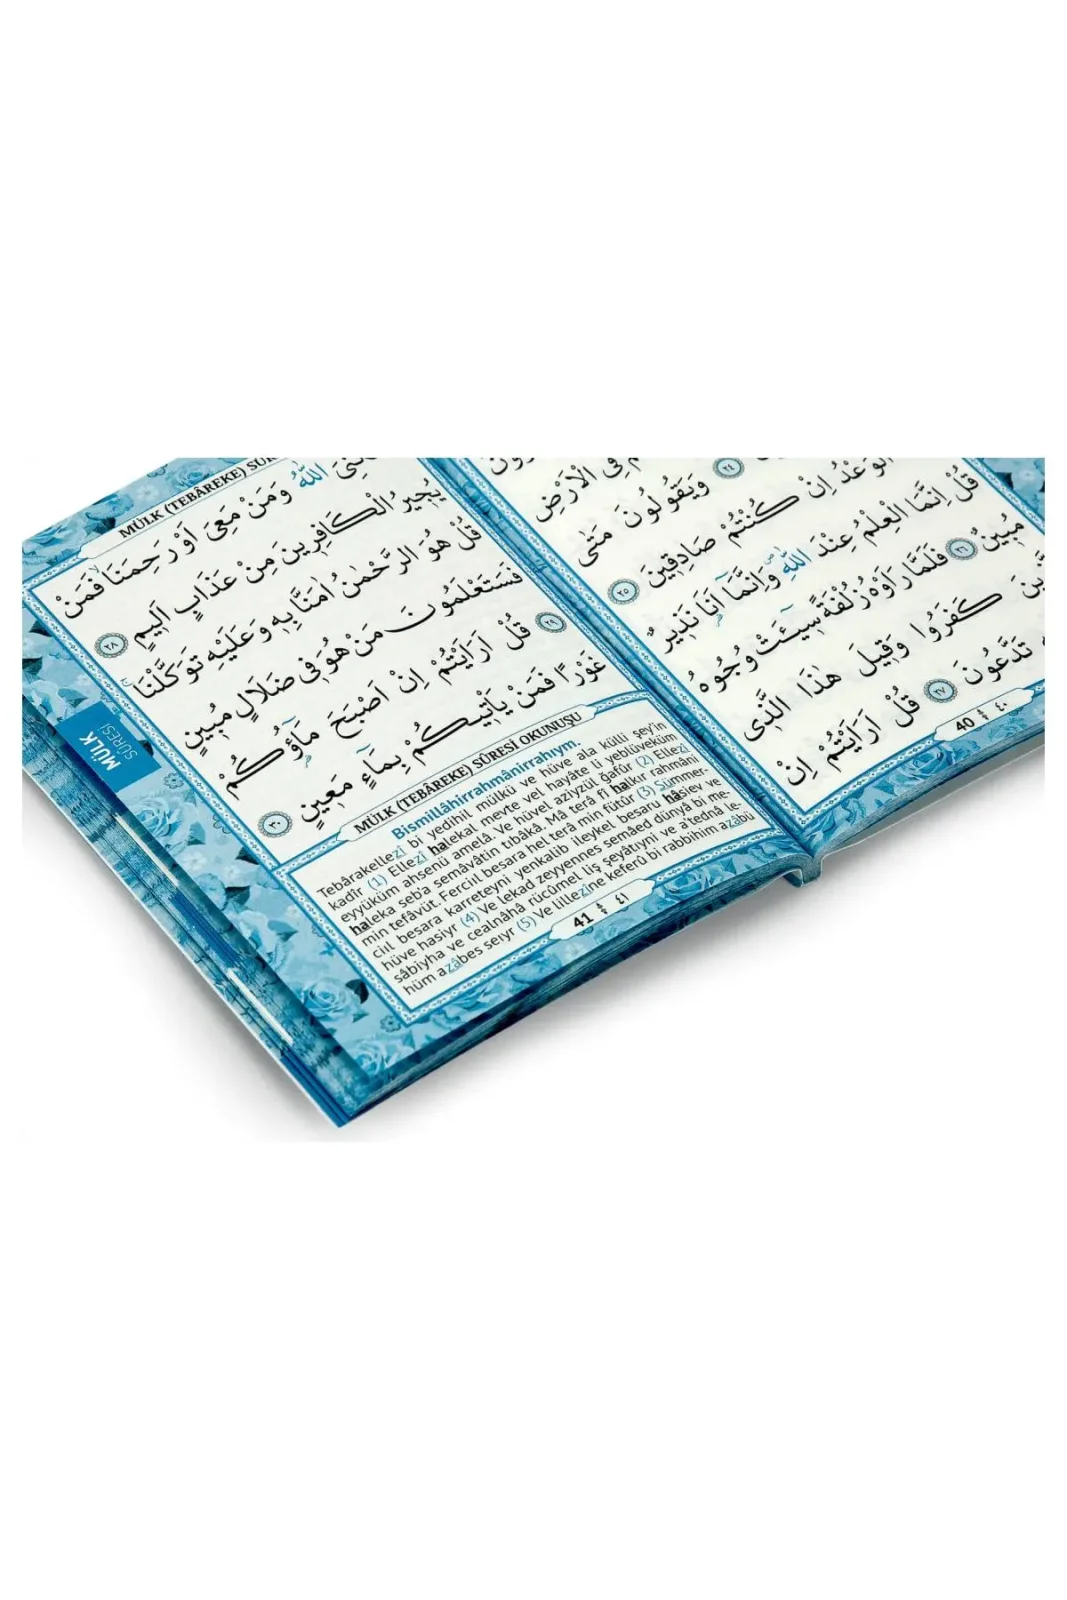 ٢٤
وَيَقُولُونَ مَتٰى
الْوَعْدُ اِنْ كُنْتُمْ صَادِقِينَ ٢٥
قُلْ اِنَّمَا الْعِلْمُ عِنْدَ اللّٰهِ وَاِنَّمَٓا اَنَا۬ نَذِيرٌ
مُبِينٌ ٢٦ فَلَمَّا رَاَوْهُ زُلْفَةً سِٓيـَٔتْ وُجُوهُ
كَفَرُوا وَقِيلَ هٰذَا الَّذِى
تَدَّعُونَ ٢٧ قُلْ اَرَاَيْتُمْ اِنْ
40 ٤٠
MÜLK (TEBÂREKE)
اللّٰهُ وَمَنْ مَعِىَ اَوْ رَحِمَنَاۙ فَمَنْ
يُجِيرُ الْكَافِرِينَ مِنْ عَذَابٍ اَلِيمٍ ٢٨
قُلْ هُوَ الرَّحْمٰنُ اٰمَنَّا بِهِ وَعَلَيْهِ تَوَكَّلْنَاۚ
فَسَتَعْلَمُونَ مَنْ هُوَ فِى ضَلَالٍ مُبِينٍ
٢٩ قُلْ اَرَاَيْتُمْ اِنْ اَصْبَحَ مَٓاؤُ۬كُمْ
غَوْرًا فَمَنْ يَأْتِيكُمْ بِمَٓاءٍ مَعِينٍ ٣٠
MÜLK
SÛRESİ
MÜLK (TEBÂREKE) SÛRESİ OKUNUŞU
Bismillâhirrahmânirrahıym.
Tebârakellezî bi yedihil mülkü ve hüve ala külli şey'in
kadîr (1) Ellezî halekal mevte vel hayâte li yeblüveküm
eyyüküm ahsenü amelâ. Ve hüvel azîyzül ğafûr (2) Ellezî
haleka seb'a semâvâtin tıbâkâ. Mâ terâ fî halkır rahmâni
min tefâvüt. Ferciıl besara hel terâ min fütûr (3) Sümmer-
ciıl besara karreteyni yenkalib ileykel besaru hâsiev ve
hüve hasiyr (4) Ve lekad zeyyennes semâed dünyâ bi me-
sâbîyha ve cealnâhâ rücûmel liş şeyâtıyni ve a'tednâ le-
hüm azâbes seıyr (5) Ve lillezîne keferû bi rabbihim azâbü
41 ٤١